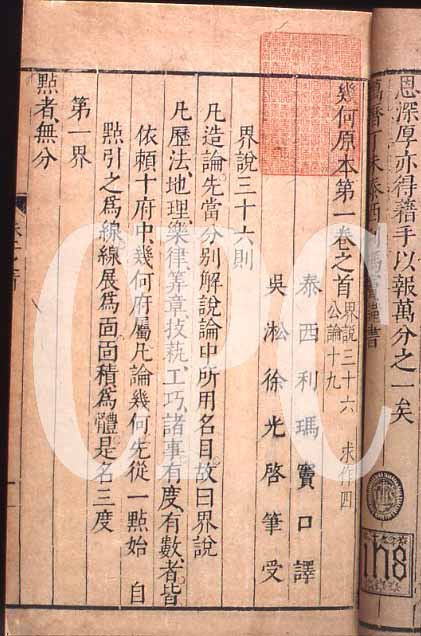 恩深厚亦得藉手以報萬分之一矣
幾何原本第一卷之首 界說三十六 求作四
公論十九
泰西利瑪竇口譯
吳淞徐光啓筆受
界說三十六則
凡造論先當分別解說論中所用名目故曰界說
凡歷法地理樂律筭章技藝工巧諸事有度有數者皆
依頼十府中幾何府屬凡論幾何先從一點始 自
點引之爲線線展爲面面積爲體是名三度
第一界
點者無分
IHS
CPC